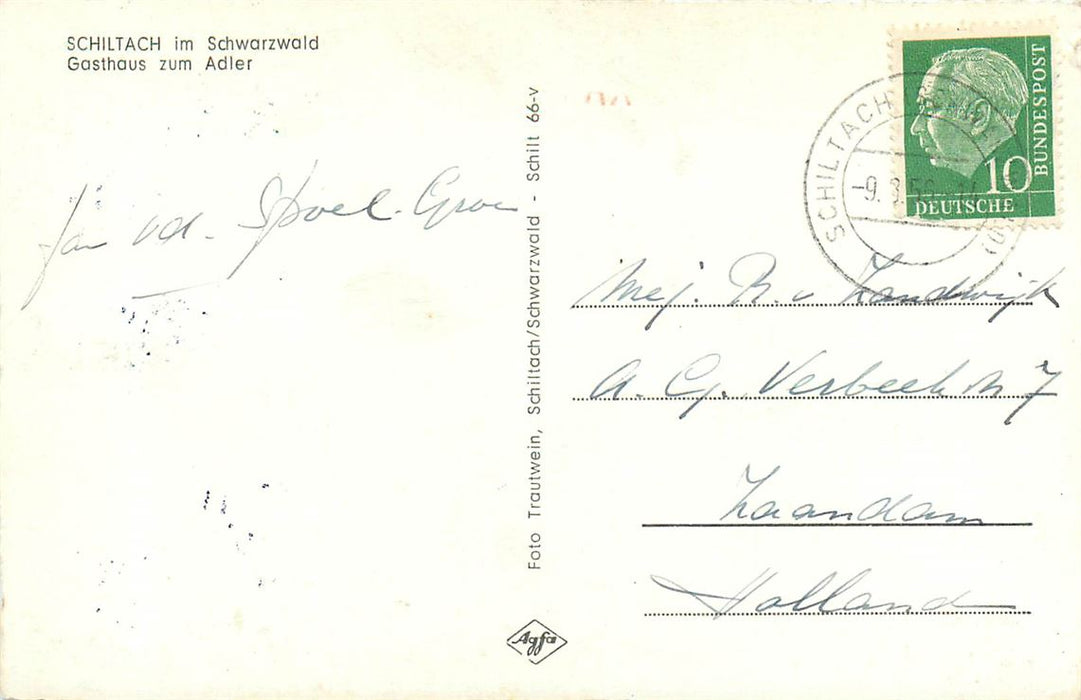 SCHILTACH im Schwarzwald
Gasthaus zum Adler
Jan vd. Spoel-Groe
Foto Trautwein, Schiltach/Schwarzwald - Schilt 66-v
Agfa
SCHILTACH
-9. 8. 14
BUNDESPOST
10
DEUTSCHE
Mej. R. v Zandwijk
A. G. Verbeek 7
Zaandam
Holland